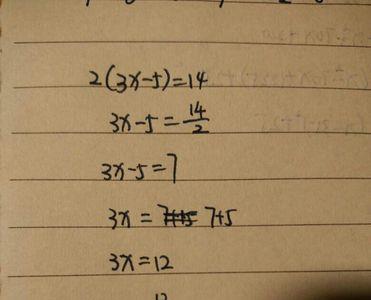 2(3x-5)=14
3x-5=14/2
3x-5=7
3x=7+5
3x=12
12